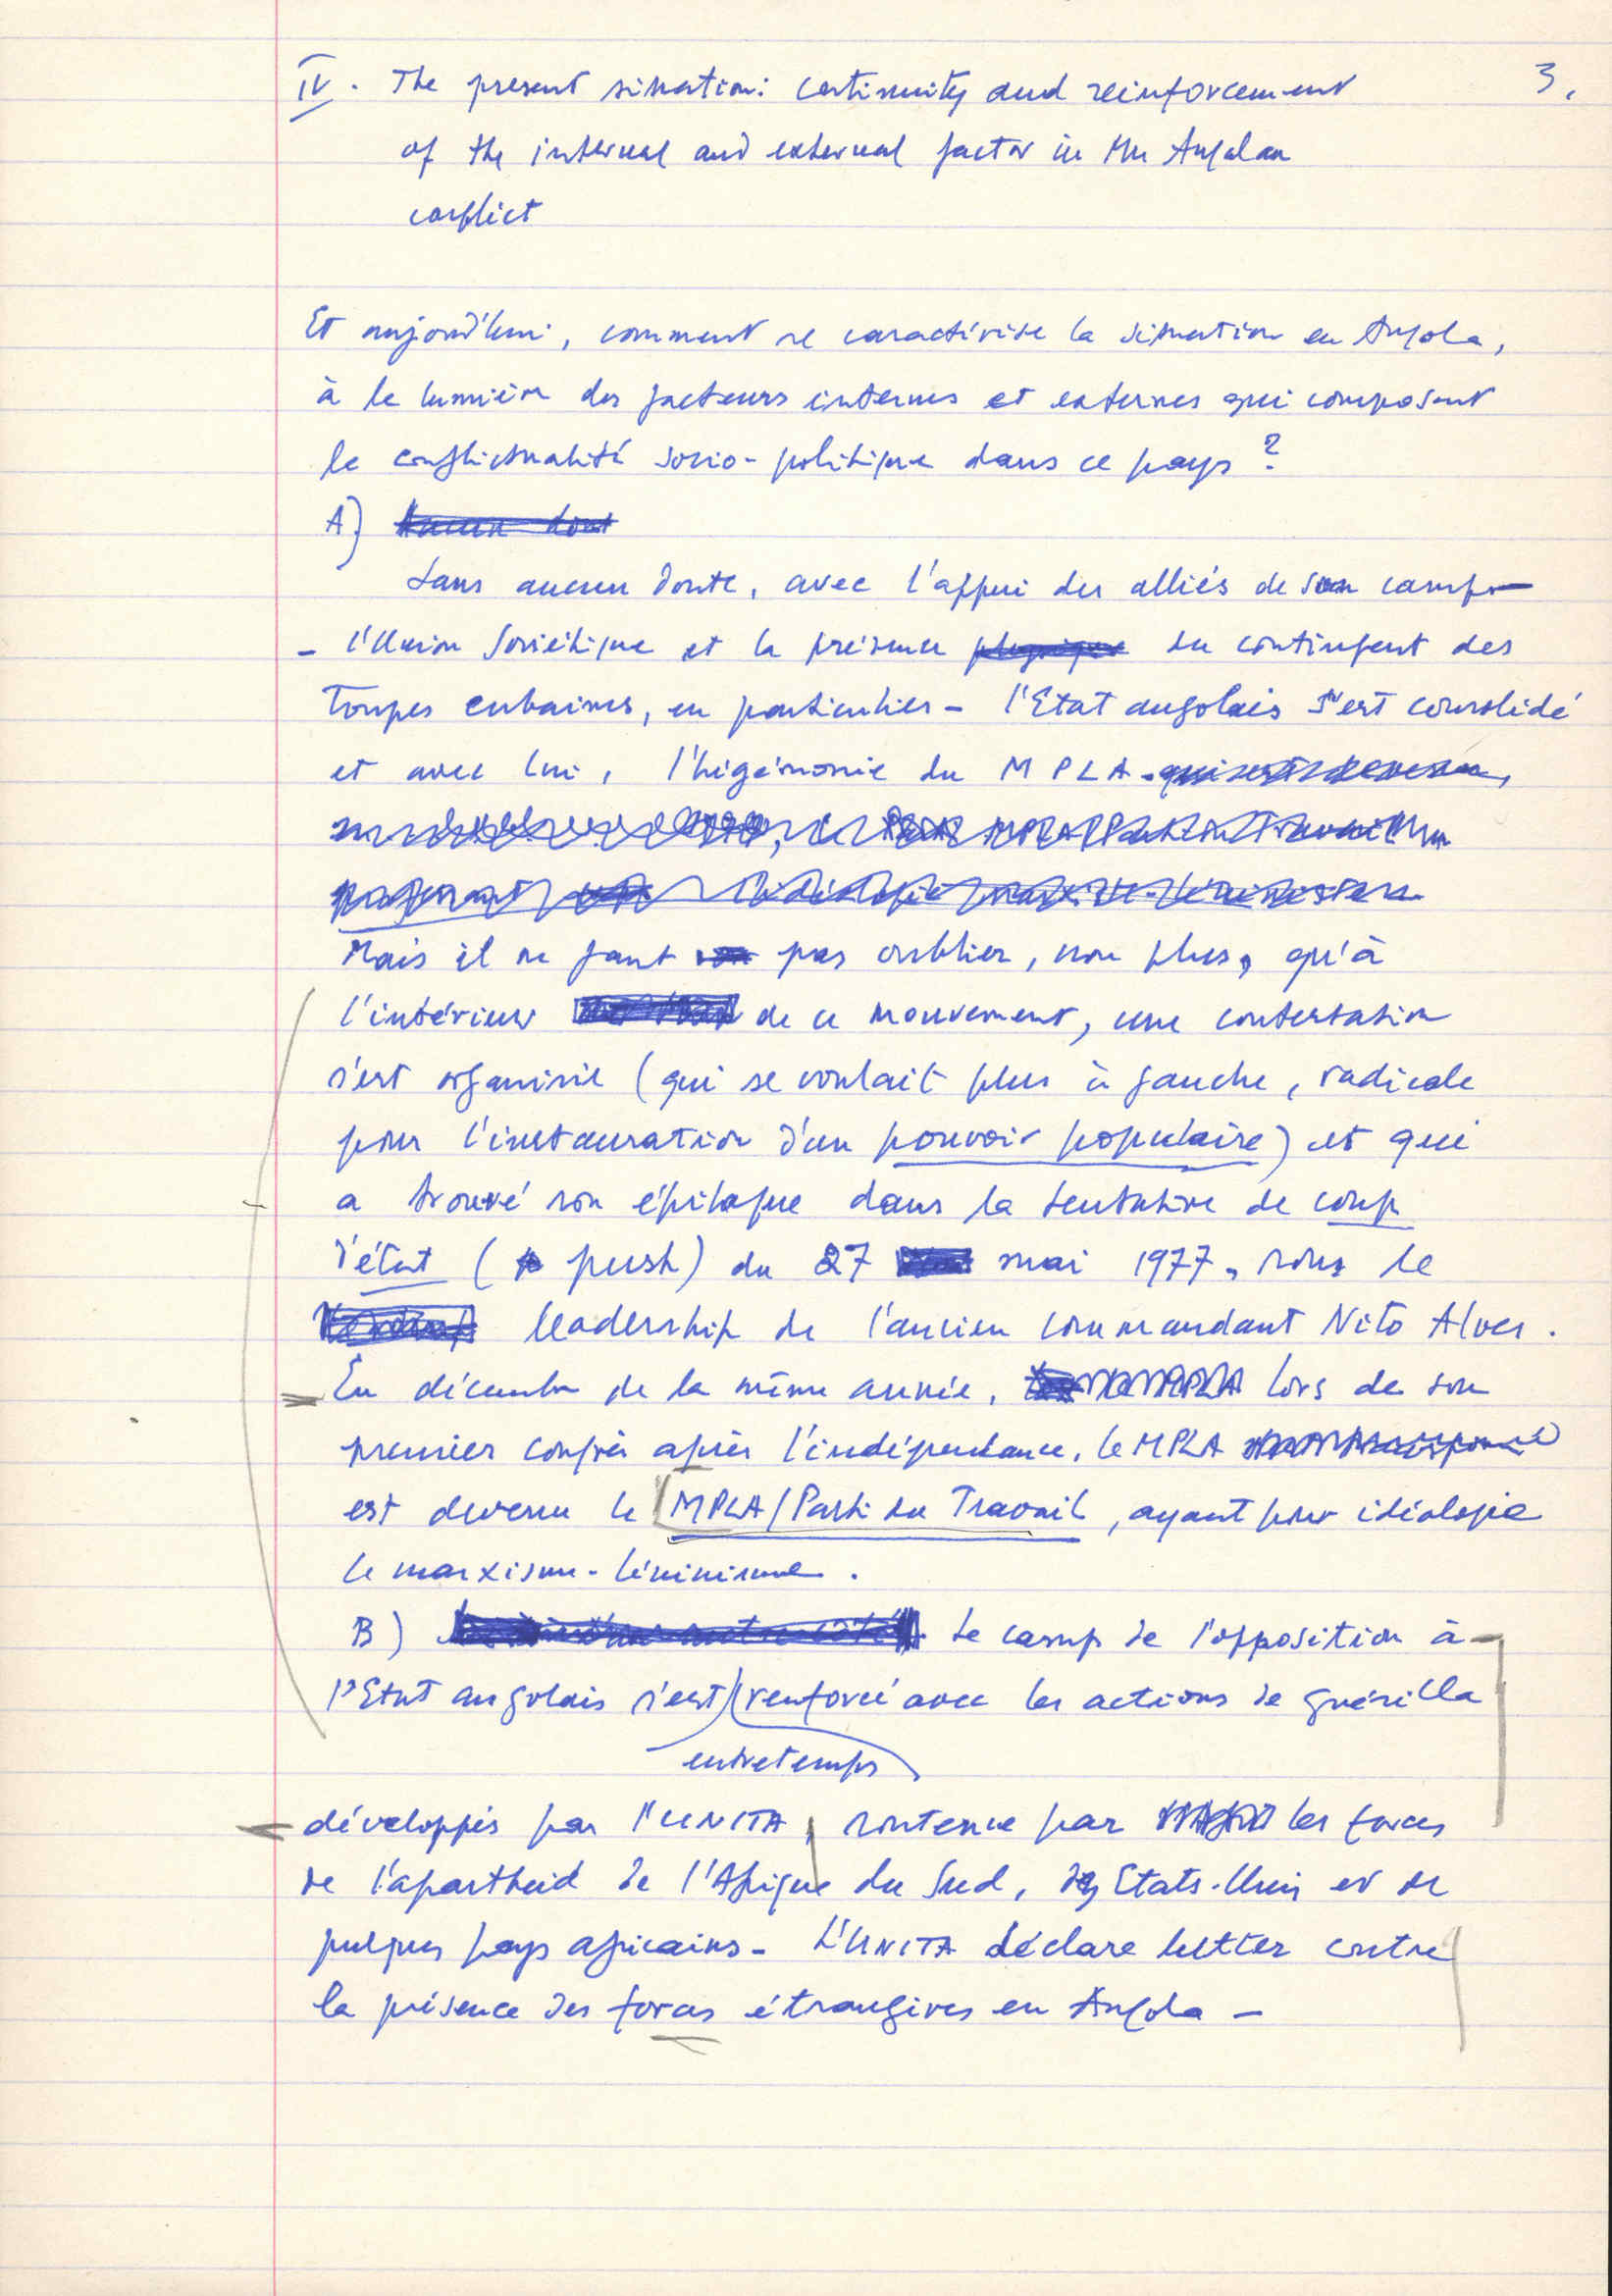 IV. The present situation: continuity and reinforcement
3.
of the internal and external factor in the Angolan
conflict
Et aujourd'hui, comment se caractérise la situation en Angola,
à la lumière des facteurs internes et externes qui composent
la conflictualité socio-politique dans ce pays?
A)
Sans aucun doute, avec l'appui des alliés de son camp -
- l'Union Soviétique et la présence du contingent des
toupes cubaines, en particulier - l'Etat angolais s'est consolidé
et avec lui, l'hégémonie du MPLA.
Mais il ne faut pas oublier, non plus, qu'à
l'intérieur de ce mouvement, une contestation
s'est organisée (qui se voulait plus à gauche, radicale
pour l'instauration d'un pouvoir populaire) et qui
a trouvé son épilogue dans la tentative de coup
d'état (push) du 27 mai 1977, sous le
leadership de l'ancien commandant Nito Alves.
En décembre de la même année, lors de son
premier congrès après l'indépendance, le MPLA
est devenu le MPLA/Parti du Travail, ayant pour idéologie
le marxisme-léninisme.
B) Le camp de l'opposition à
l'Etat angolais s'est renforcé avec les actions de guérilla
entretemps
développés par l'UNITA, soutenue par les forces
de l'apartheid de l'Afrique du Sud, des Etats-Unis et de
quelques pays africains - L'UNITA déclare lutter contre
la présence des forces étrangères en Angola -